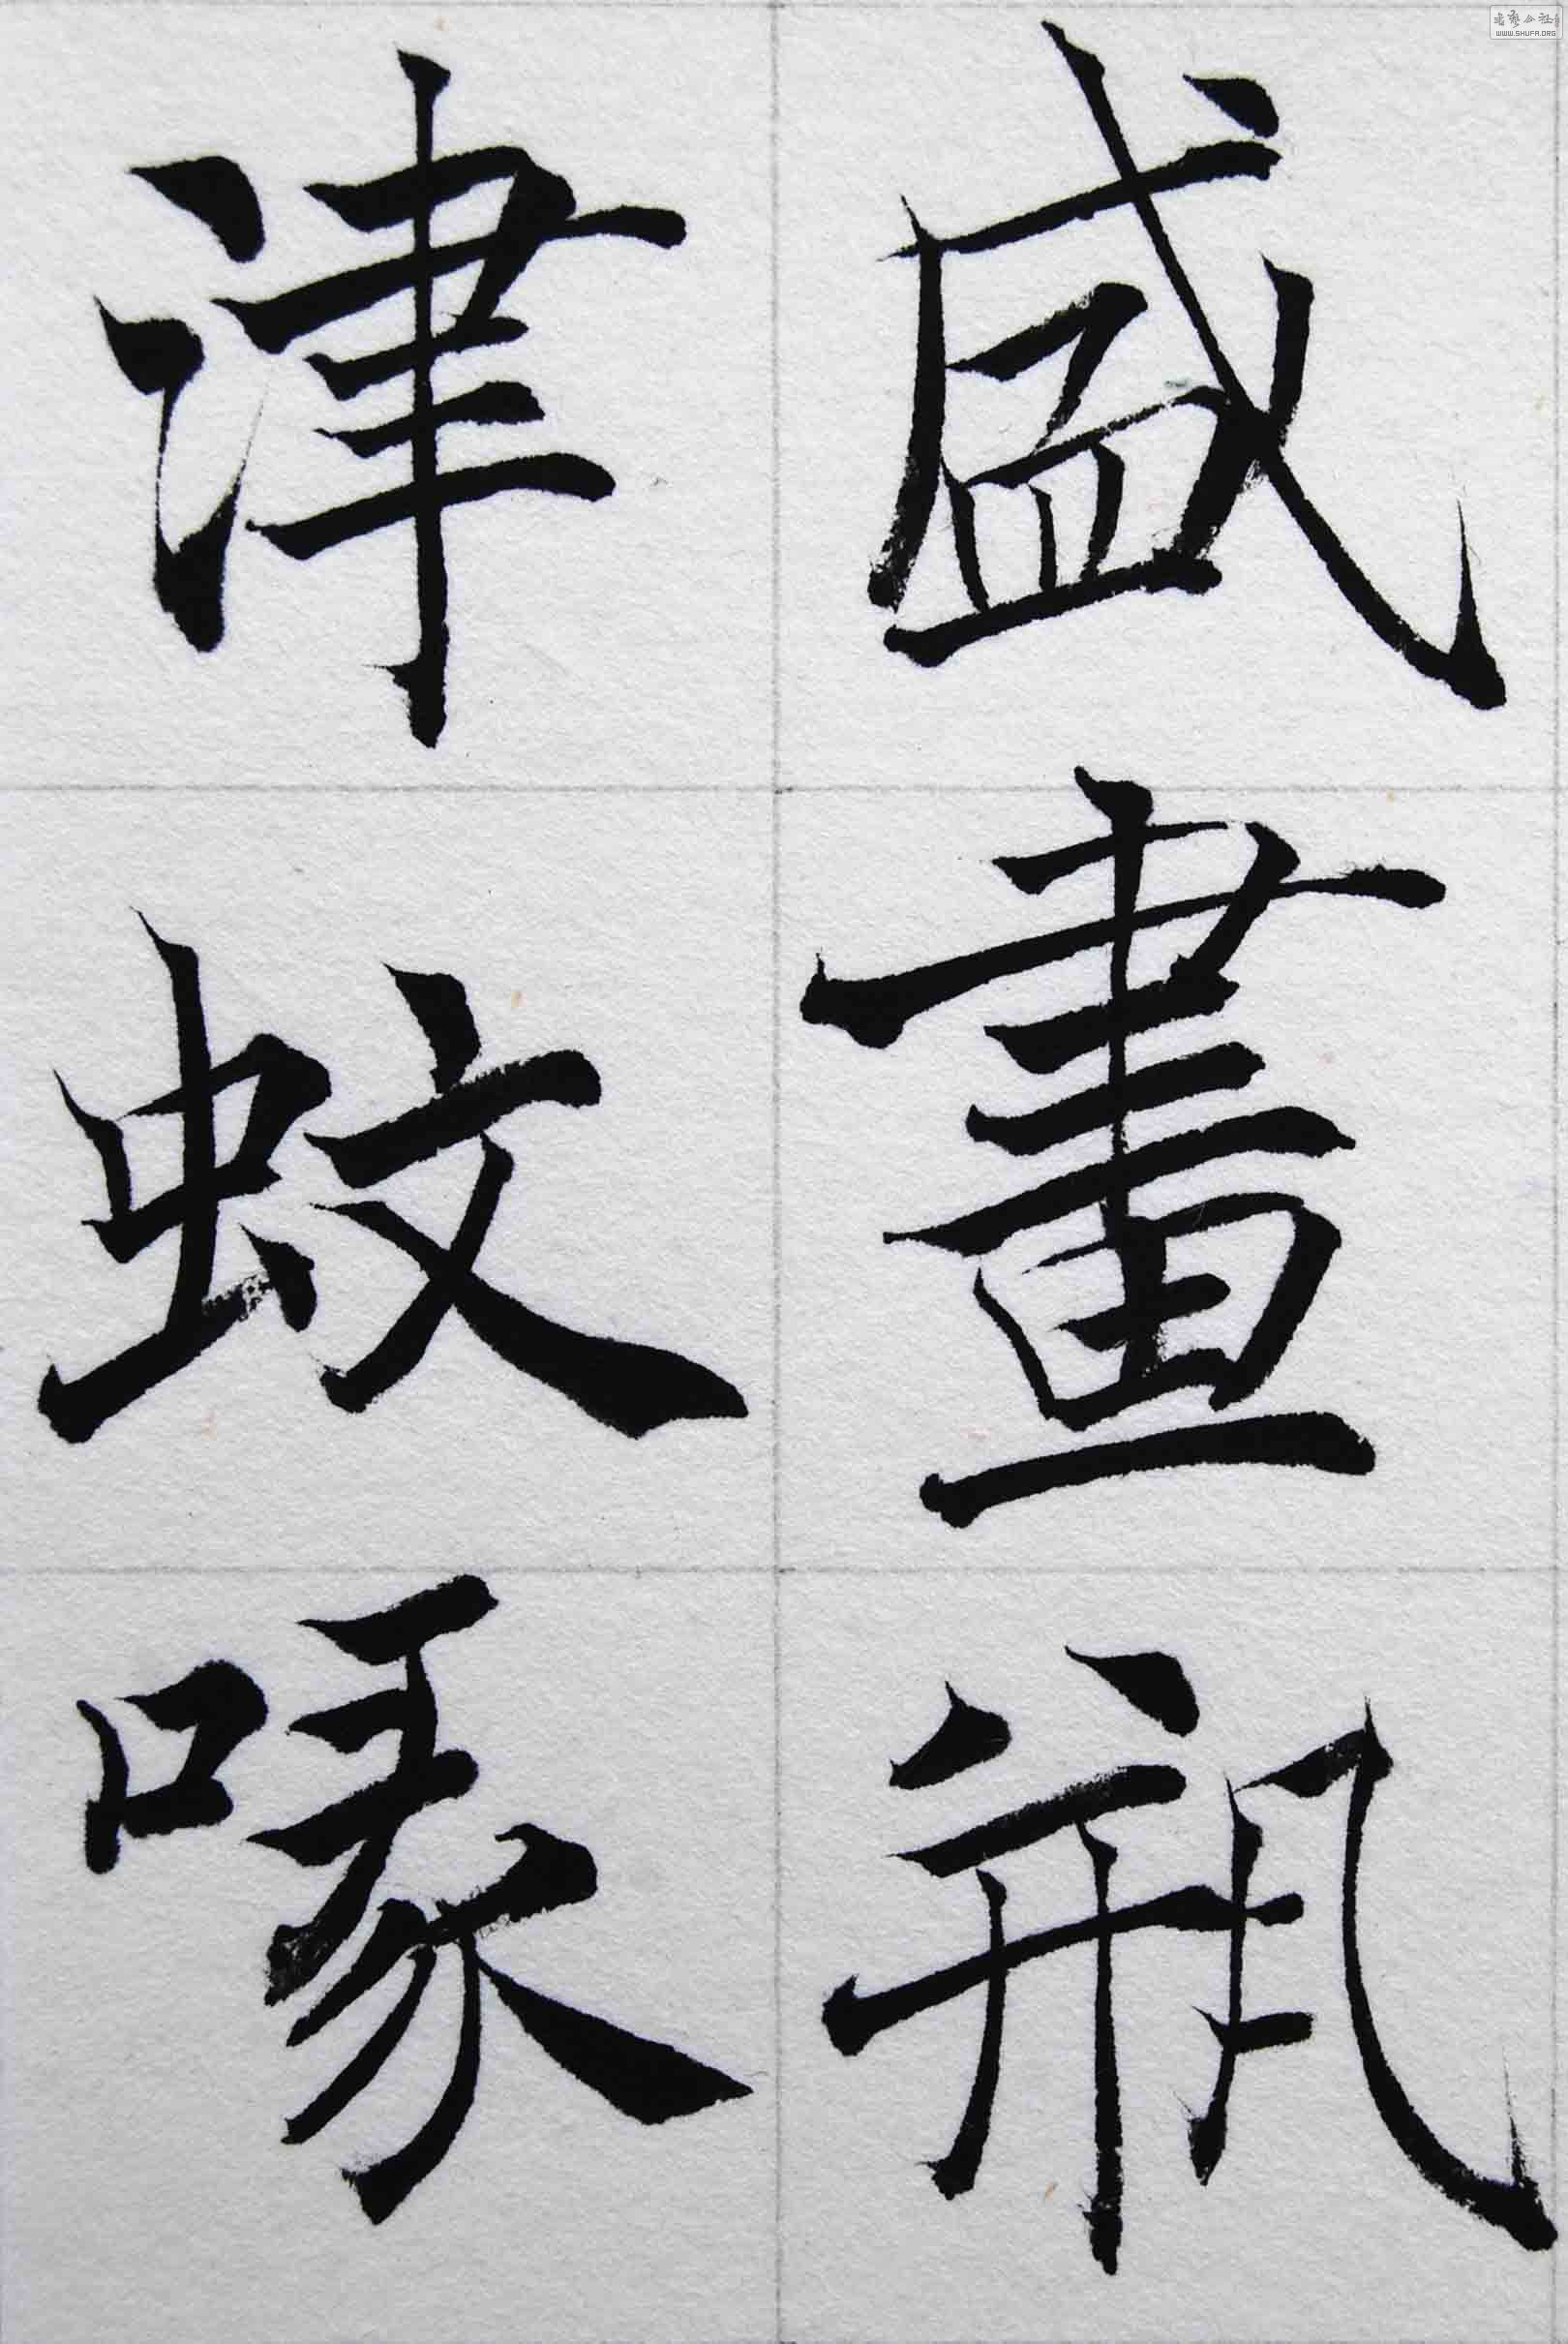 盛畫瓶
津蚊喙
书艺公社
WWW.SHUFA.ORG